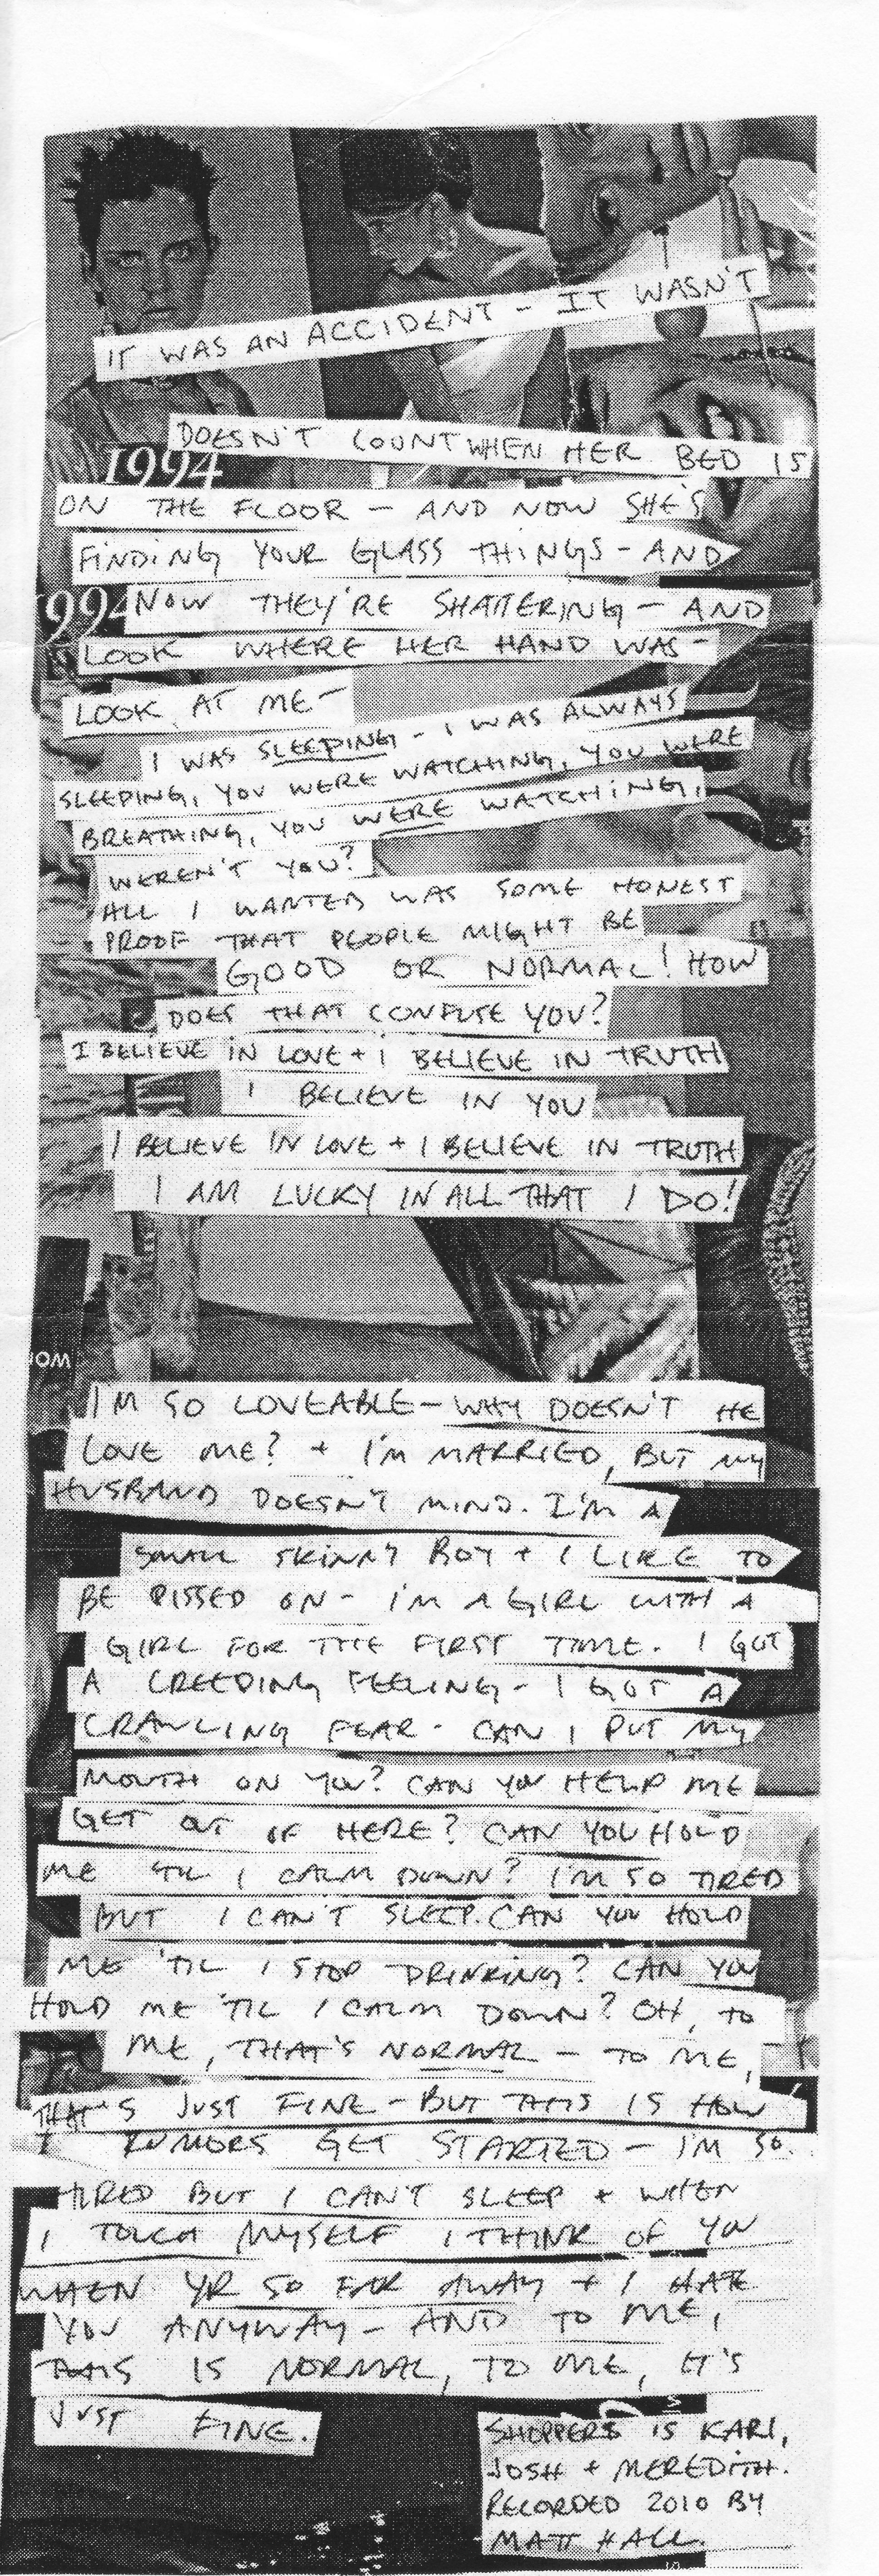 IT WAS AN ACCIDENT - IT WASN'T
DOESN'T COUNT WHEN HER BED IS
1994
ON THE FLOOR - AND NOW SHE'S
FINDING YOUR GLASS THINGS - AND
1994
NOW THEY'RE SHATTERING - AND
LOOK WHERE HER HAND WAS -
LOOK AT ME -
I WAS SLEEPING - I WAS ALWAYS
SLEEPING, YOU WERE WATCHING, YOU WERE
BREATHING, YOU WERE WATCHING,
WEREN'T YOU?
ALL I WANTED WAS SOME HONEST
PROOF THAT PEOPLE MIGHT BE
GOOD OR NORMAL! HOW
DOES THAT CONFUSE YOU?
I BELIEVE IN LOVE + I BELIEVE IN TRUTH
I BELIEVE IN YOU
I BELIEVE IN LOVE + I BELIEVE IN TRUTH
I AM LUCKY IN ALL THAT I DO!
WOM
I'M SO LOVEABLE - WHY DOESN'T HE
LOVE ME? + I'M MARRIED, BUT MY
HUSBAND DOESN'T MIND. I'M A
SMALL SKINNY BOY + I LIKE TO
BE PISSED ON - I'M A GIRL WITH A
GIRL FOR THE FIRST TIME. I GOT
A CREEPING FEELING - I GOT A
CRAWLING FEAR - CAN I PUT MY
MOUTH ON YOU? CAN YOU HELP ME
GET OUT OF HERE? CAN YOU HOLD
ME 'TIL I CALM DOWN? I'M SO TIRED
BUT I CAN'T SLEEP. CAN YOU HOLD
ME 'TIL I STOP DRINKING? CAN YOU
HOLD ME 'TIL I CALM DOWN? OH, TO
ME, THAT'S NORMAL - TO ME,
THAT'S JUST FINE - BUT THIS IS HOW
RUMORS GET STARTED - I'M SO
TIRED BUT I CAN'T SLEEP + WHEN
I TOUCH MYSELF I THINK OF YOU
WHEN YR SO FAR AWAY + I HATE
YOU ANYWAY - AND TO ME,
THIS IS NORMAL, TO ME, IT'S
JUST FINE.
SHOPPERS IS KARI,
JOSH + MEREDITH.
RECORDED 2010 BY
MATT HALL.